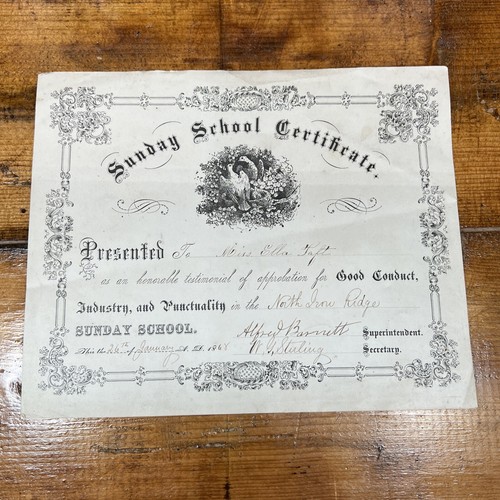 Sunday School Certificate.
Presented To Miss Ella Taft
for
as an honorable testimonial of approbation for Good Conduct,
Industry, and Punctuality in the North Iron Ridge
SUNDAY SCHOOL. Alfred Bennett Superintendent.
This the 26th of January A. D. 1868 Secretary.